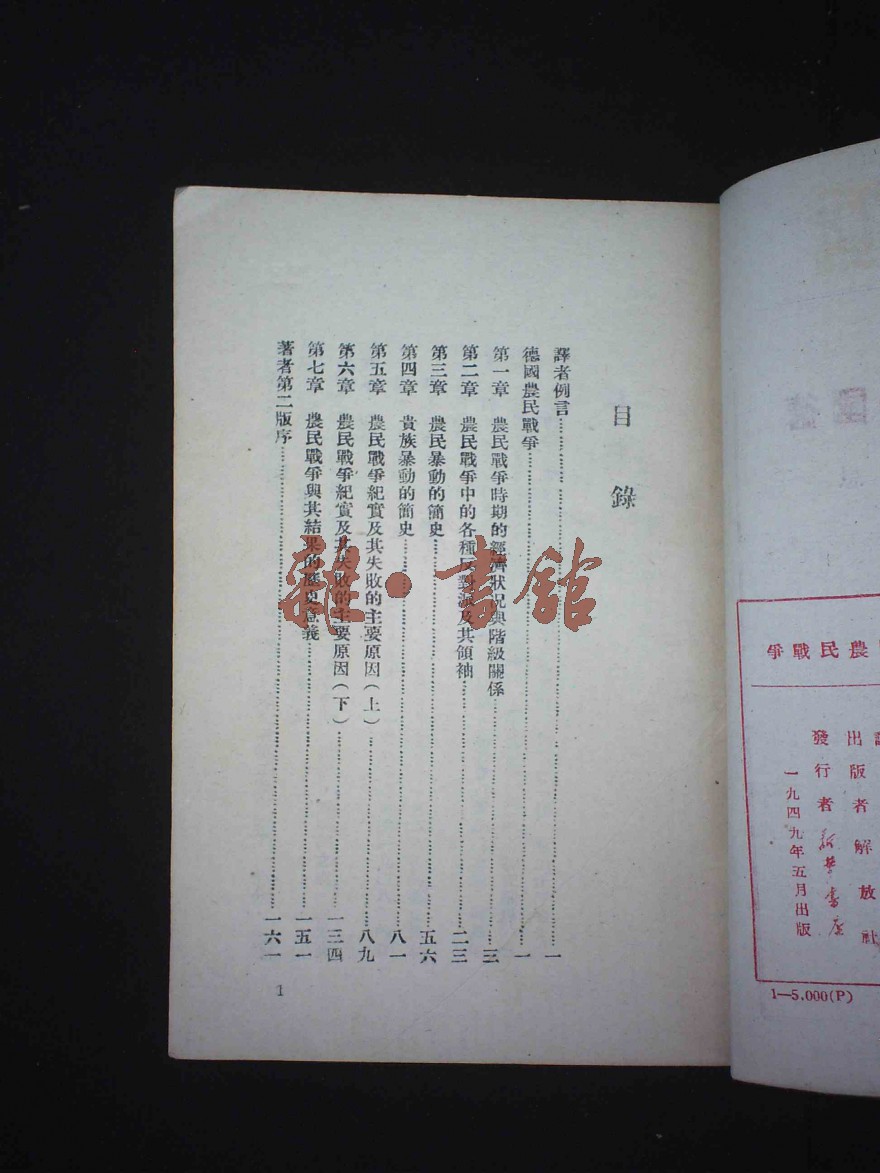 目錄
譯者例言……一
德國農民戰爭……一
第一章 農民戰爭時期的經濟狀況與階級關係……三
第二章 農民戰爭中的各種反對派及其領袖……二三
第三章 農民暴動的簡史……五六
第四章 貴族暴動的簡史……八一
第五章 農民戰爭紀實及其失敗的主要原因(上)……八九
第六章 農民戰爭紀實及其失敗的主要原因(下)……一三四
第七章 農民戰爭與其結果的歷史意義……一五一
著者第二版序……一六一
1
雜·書館
農民戰爭
出版者解放社
發行者新華書店
一九四九年五月出版
1—5.000(P)